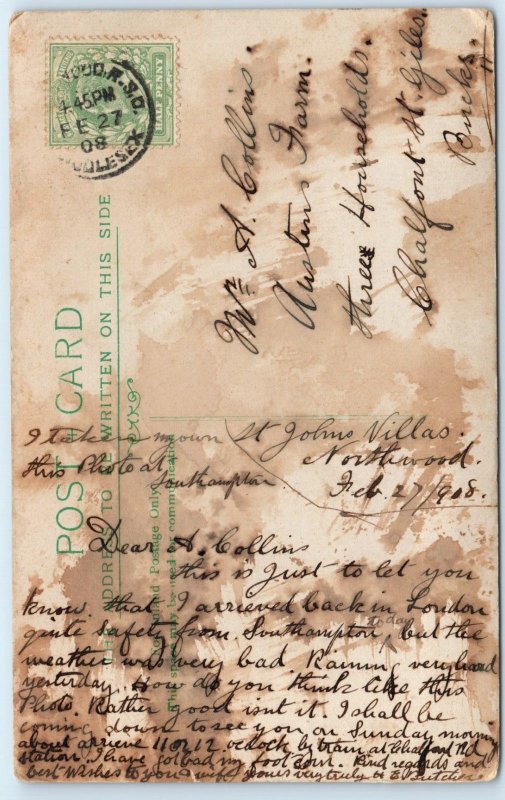 WOOD.R.S.O
4.45PM
FE 27
08
MIDDLESEX
HALF PENNY
POST CARD
THE ADDRESS TO BE WRITTEN ON THIS SIDE
Inland Postage Only
this space may be used for communication
Mr A. Collins.
Austins Farm.
three Households.
Chalfont St. Giles.
Bucks.
I taken my own
this Photo at
Southampton
St Johns Villas.
Northwood.
Feb 27/1908.
Dear A. Collins
this is Just to let you
know that I arrieved back in London
quite safely from Southampton, to day but the
weather was very bad Raining very hard
yesterday. How do you think Like this
Photo. Rather good isnt it. I shall be
coming down to see you on Sunday morning
about arrieve 11 or 12. oclock by train at Chalfont Rd
station. I have got bad my foot Corn. Kind regards and
best Wishes to your wife yours very truly H E Butcher